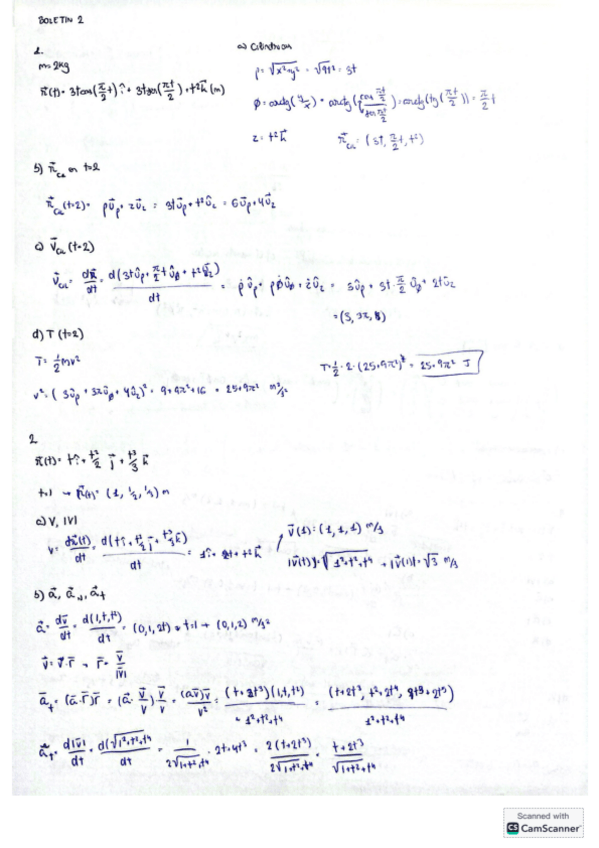 BOLETIN 2
1.
m=2kg
r⃗(t)= 3tcos(π/2 t) î + 3tsen(πt/2) + t²k⃗ (m)
a) Cilíndricas
ρ = √(x²+y²) = √9t² = 3t
ϕ = arctg(y/x) = arctg(tg(π/2 t)) = π/2 t
z = t²k⃗
r⃗ = (3t, π/2 t, t²)
b) r⃗ en t=2
r⃗(t=2)= ρu⃗ρ + zu⃗z = 3tûρ + t²ûz = 6u⃗ρ + 4u⃗z
c) V⃗ (t=2)
v⃗ = dr⃗/dt = d(3tûρ + π/2 t ûϕ + t²u⃗z)/dt = ρ̇ûρ + ρϕ̇ûϕ + żûz = 3ûρ + 3t·π/2 ûϕ + 2tûz
d) T (t=2)
T = 1/2 mv²
T = 1/2 · 2 · (25+9π²) = 25+9π² J
v² = ( 3ûρ + 3πûϕ + 4ûz)² = 9+9π²+16 = 25+9π² m²/s²
2.
r⃗(t)= tî + t²/2 j⃗ + t³/3 k⃗
t=1 → r⃗(t)= (1, 1/2, 1/3) m
a) V, |V|
v = dr⃗(t)/dt = d(tî + t²/2 j⃗ + t³/3 k⃗)/dt = 1î + t + t²k⃗
v⃗(1): (1, 1, 1) m/s
|v⃗(t)| = √(1²+t²+t⁴ → |v⃗(1)| = √3 m/s
b) a⃗, a⃗N, a⃗t
a⃗ = dv⃗/dt = d(1,t,t²)/dt = (0,1,2t) → t=1 → (0,1,2) m/s²
v⃗ = v·τ⃗ → τ⃗ = v⃗/|v⃗|
a⃗t = (a⃗·τ⃗)τ⃗ = (a⃗·v⃗/v)v⃗/v = (a⃗v⃗)v⃗/v² = (t+2t³)(1,t,t²)/1²+t²+t⁴ = (t+2t³, t²+2t⁴, t³+2t⁵)/1²+t²+t⁴
a⃗t = d|v⃗|/dt = d(√1²+t²+t⁴/dt = 1/2√1+t²+t⁴ · 2t+4t³ = 2(t+2t³)/2√1+t²+t⁴ = t+2t³/√1+t²+t⁴
Scanned with
CS CamScanner